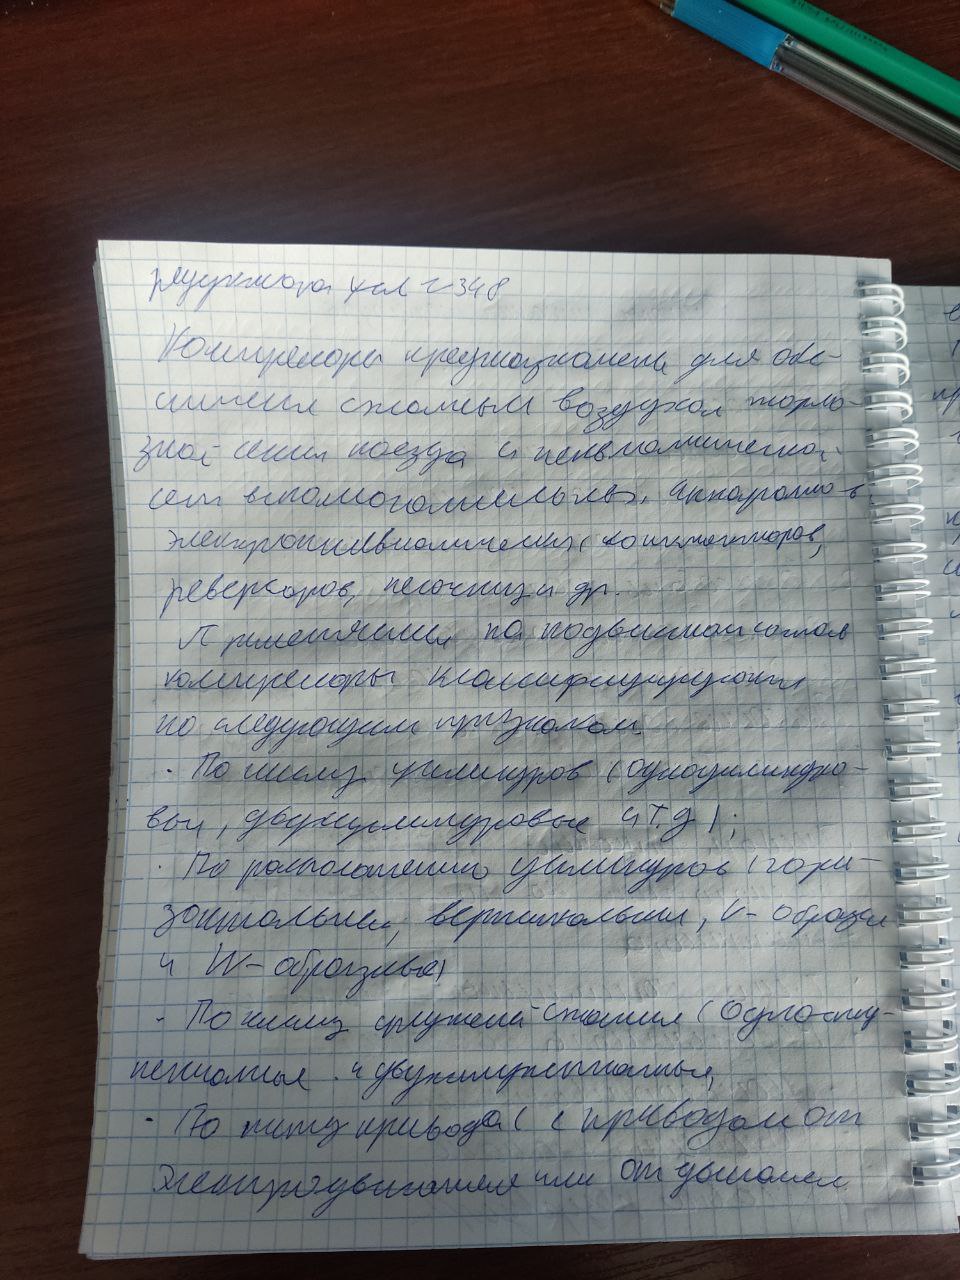 редуктора усл №348
Компрессоры предназначены для обес-
печения сжатым воздухом тормо-
зной сети поезда и пневматической
сети вспомогательных аппаратов
электропневматических контакторов,
реверсоров, песочниц и др.
Применяемые на подвижном составе
компрессоры классифицируются
по следующим признакам.
· По числу цилиндров (одноцилиндро-
вые, двухцилиндровые и т.д);
· По расположению цилиндров (гори-
зонтальные, вертикальные, V-образные
и W-образные)
· По числу ступеней сжатия (односту-
пенчатые и двухступенчатые,
· По типу привода (с приводом от
электродвигателя или от дизеля